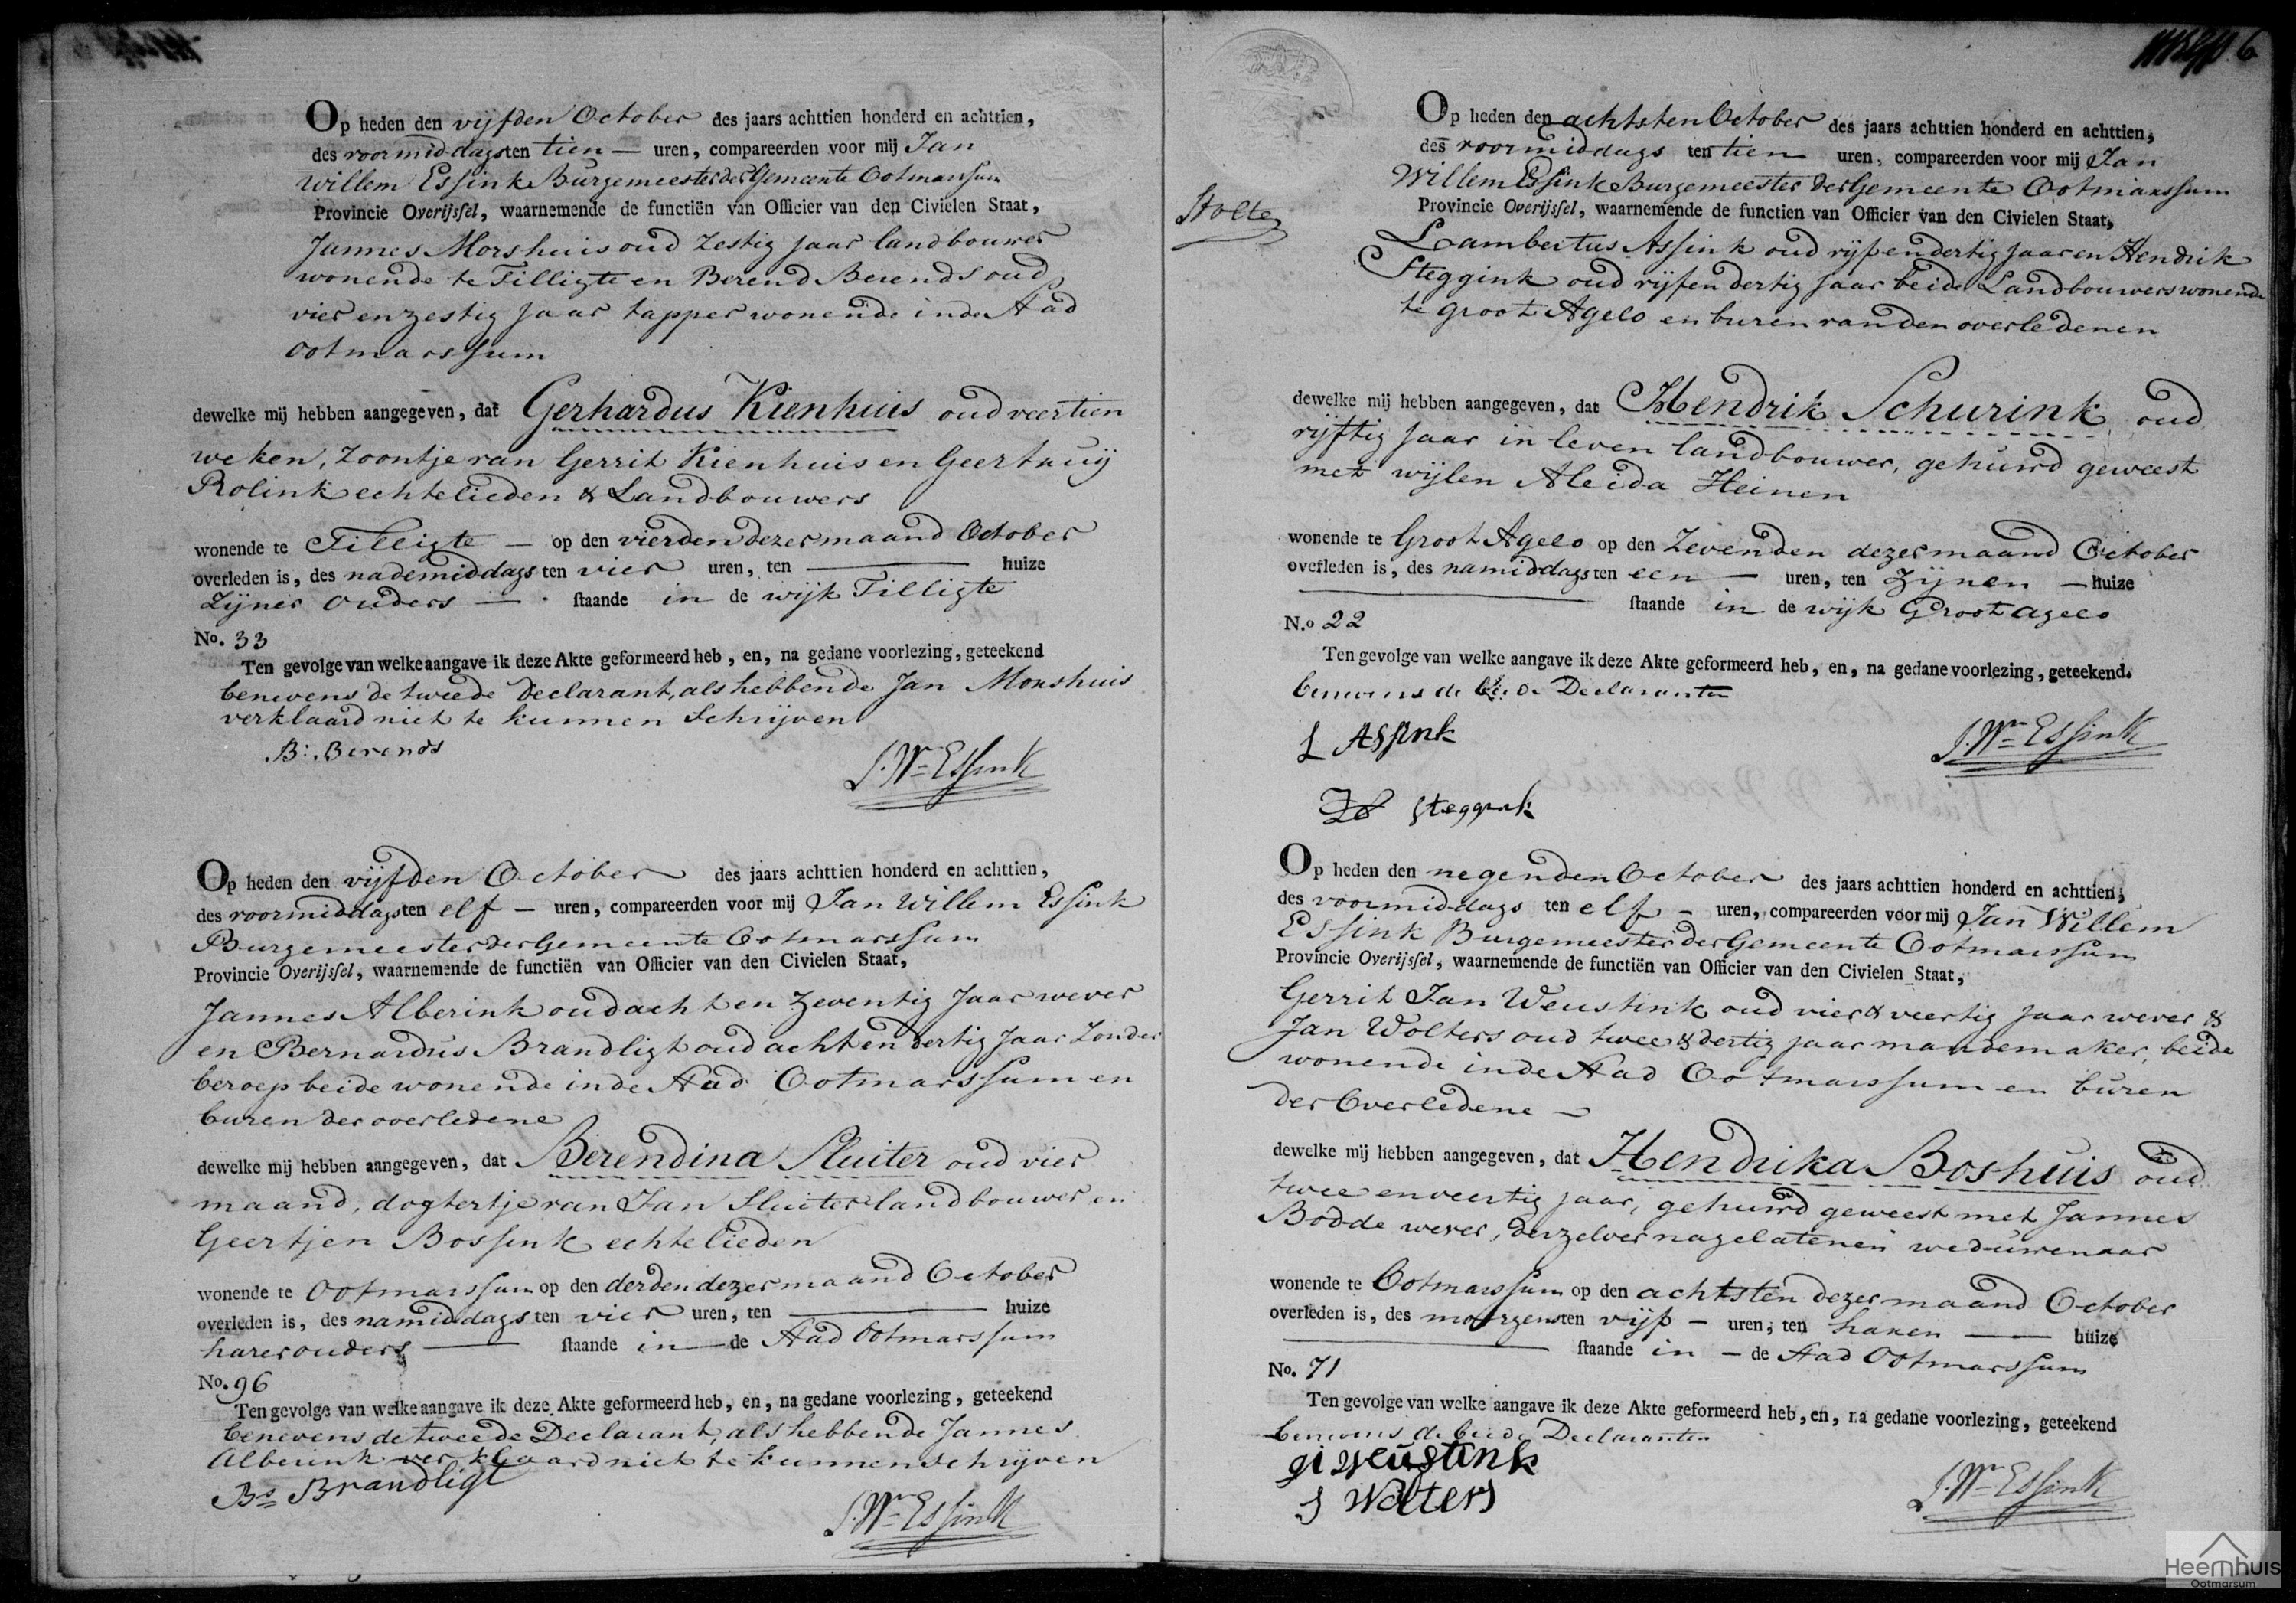 Op heden den vijfden October des jaars achttien honderd en achttien,
des voormiddags ten tien — uren, compareerden voor mij Jan
Willem Essink Burgemeester der Gemeente Ootmarssum
Provincie Overijssel, waarnemende de functiën van Officier van den Civielen Staat,
Jannes Morshuis oud Zestig Jaar landbouwer
wonende te Tilligte en Berend Berends oud
vier en zestig Jaar tapper wonende in de Stad
Ootmarssum
dewelke mij hebben aangegeven, dat Gerhardus Kienhuis oud veertien
weken, Zoontje van Gerrit Kienhuis en Geertruij
Rolink echtelieden & Landbouwers
wonende te Tilligte — op den vierden dezer maand October
overleden is, des nademiddags ten vier uren, ten — huize
Zijner Ouders — staande in de wijk Tilligte
No. 33
Ten gevolge van welke aangave ik deze Akte geformeerd heb, en, na gedane voorlezing, geteekend
benevens de tweede Declarant, als hebbende Jan Morshuis
verklaard niet te kunnen Schrijven
B: Berends
J. Wm Essink
Op heden den vijfden October des jaars achttien honderd en achttien,
des voormiddags ten elf — uren, compareerden voor mij Jan Willem Essink
Burgemeester der Gemeente Ootmarssum
Provincie Overijssel, waarnemende de functiën van Officier van den Civielen Staat,
Jannes Alberink oud acht en Zeventig Jaar wever
en Bernardus Brandligt oud acht en dertig Jaar Zonder
beroep beide wonende in de Stad Ootmarssum en
buren der overledene
dewelke mij hebben aangegeven, dat Berendina Sluiter oud vier
maand, dogtertje van Jan Sluiter landbouwer en
Geertjen Bossink echtelieden
wonende te Ootmarssum op den derden dezer maand October
overleden is, des namiddags ten vier uren, ten — huize
harer ouders — staande in — de Stad Ootmarssum
No. 96
Ten gevolge van welke aangave ik deze Akte geformeerd heb, en, na gedane voorlezing, geteekend
benevens de tweede Declarant, als hebbende Jannes
Alberink verklaard niet te kunnen schrijven
Bs Brandligt
J. Wm Essink
6
Stolte
Op heden den achtsten October des jaars achttien honderd en achttien,
des voormiddags ten tien uren, compareerden voor mij Jan
Willem Essink Burgemeester der Gemeente Ootmarssum
Provincie Overijssel, waarnemende de functien van Officier van den Civielen Staat,
Lambertus Assink oud vijf en dertig Jaar en Hendrik
Steggink oud vijf en dertig Jaar beide Landbouwers wonende
te groot Agelo en buren van den overledenen
dewelke mij hebben aangegeven, dat Hendrik Schurink oud
vijftig Jaar in leven landbouwer, gehuwd geweest
met wijlen Aleida Heinen
wonende te Groot Agelo op den Zevenden dezer maand October
overleden is, des namiddags ten een — uren, ten Zijnen — huize
— staande in de wijk Groot agelo
N.o 22
Ten gevolge van welke aangave ik deze Akte geformeerd heb, en, na gedane voorlezing, geteekend.
benevens de beide Declaranten
L Assink
J. Wm Essink
steggink
Op heden den negenden October des jaars achttien honderd en achttien;
des voormiddags ten elf — uren, compareerden voor mij Jan Willem
Essink Burgemeester der Gemeente Ootmarssum
Provincie Overijssel, waarnemende de functiën van Officier van den Civielen Staat,
Gerrit Jan Weustink oud vier & veertig Jaar wever &
Jan Wolters oud twee & dertig jaar mandemaker, beide
wonende in de Stad Ootmarssum en buren
der Overledene —
dewelke mij hebben aangegeven, dat Hendrika Boshuis oud
twee en veertig jaar, gehuwd geweest met Jannes
Bodde wever, deszelver nagelatenen weduwenaar
wonende te Ootmarssum op den achtsten dezer maand October
overleden is, des morgens ten vijf — uren, ten haren — huize
— staande in — de Stad Ootmarssum
No. 71
Ten gevolge van welke aangave ik deze Akte geformeerd heb, en, na gedane voorlezing, geteekend
benevens de beide Declaranten
gi weustink
J Wolters
J. Wm Essink
Heemhuis
Ootmarsum